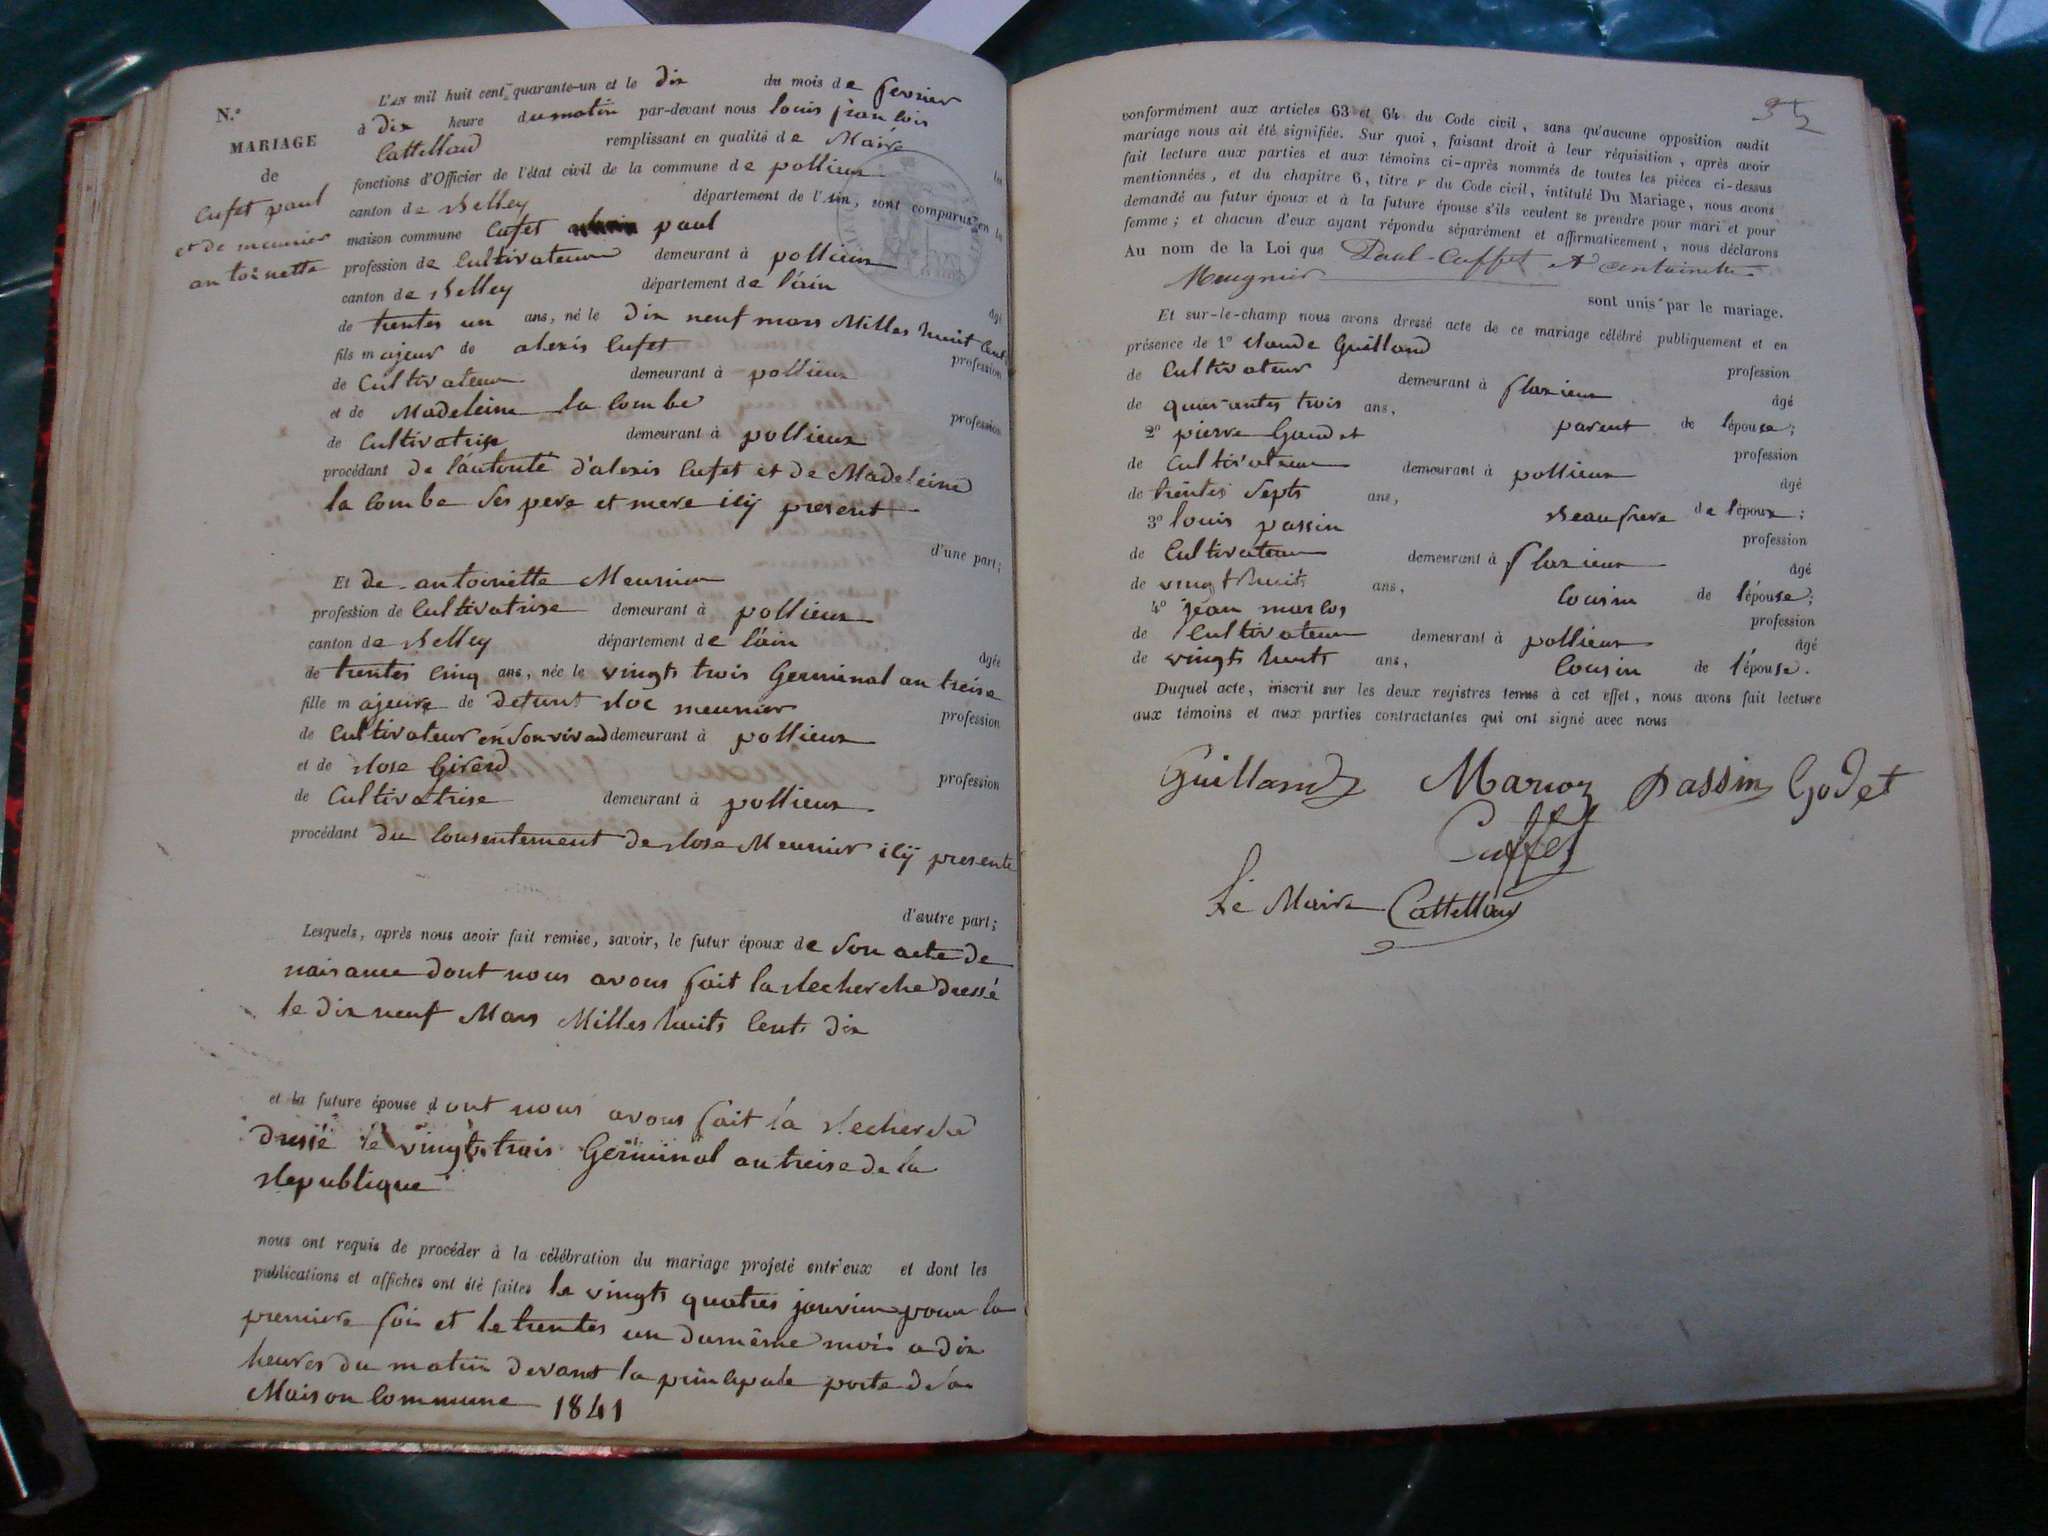 N.º
MARIAGE
de
Cufet paul
et de meunier
antoinette
L'an mil huit cent quarante-un et le dix du mois de fevrier
à dix heure du matin par-devant nous louis francois
Cattelland remplissant en qualité de Maire la
fonctions d'Officier de l'état civil de la commune de pollieux
canton de Belley département de l'Ain, sont comparus en la
maison commune Cufet paul
profession de Cultivateur demeurant à pollieux
canton de Belley département de l'ain
âgé
de trentes un ans, né le dix neuf mars Milles huit Cent
fils majeur de alexis Cufet
profession
de Cultivateur demeurant à pollieux
et de Madeleine la Combe
profession
de Cultivatrise demeurant à pollieux
procédant de l'autorité d'alexis Cufet et de Madeleine
la Combe ses pere et mere icy present
d'une part;
Et de antoinette Meunier
profession de Cultivatrise demeurant à pollieux
canton de Belley département de l'ain
âgée
de trentes cinq ans, née le vingts trois Germinal an treise
fille majeure de defunt Roc meunier
profession
de Cultivateur en son vivand demeurant à pollieux
et de Rose Girerd
profession
de Cultivatrise demeurant à pollieux
procédant du Consentement de Rose Meunier icy presente
d'autre part;
Lesquels, après nous avoir fait remise, savoir, le futur époux de son acte de
naisance dont nous avons fait la Recherche Dressé
le dix neuf Mars Milles huits Cents dix
et la future épouse dont nous avons fait la Recherche
Dressé le vingts trois Germinal an treise de la
Republique
nous ont requis de procéder à la célébration du mariage projeté entr'eux et dont les
publications et affiches ont été faites le vingts quatres janvier pour la
premiere fois et le trentes un du même mois a dix
heures du matin devant la principale porte de la
Maison Commune 1841
conformément aux articles 63 et 64 du Code civil, sans qu'aucune opposition audit
mariage nous ait été signifiée. Sur quoi, faisant droit à leur réquisition, après avoir
fait lecture aux parties et aux témoins ci-après nommés de toutes les pièces ci-dessus
mentionnées, et du chapitre 6, titre v du Code civil, intitulé Du Mariage, nous avons
demandé au futur époux et à la future épouse s'ils veulent se prendre pour mari et pour
femme; et chacun d'eux ayant répondu séparément et affirmativement, nous déclarons
Au nom de la Loi que Paul Cuffet et antoinette
Meugnier
sont unis par le mariage.
Et sur-le-champ nous avons dressé acte de ce mariage célébré publiquement et en
présence de 1º Claude Guilland
profession
de Cultivateur demeurant à flaxieux
âgé
de quarantes trois ans, parent de l'épouse;
2º pierre Gaudet
profession
de Cultivateur demeurant à pollieux
âgé
de trentes septs ans, Beaufrere de l'époux;
3º louis passin
profession
de Cultivateur demeurant à flaxieux
âgé
de vingt huits ans, Cousin de l'épouse;
4º jean
profession
de Cultivateur demeurant à pollieux
âgé
de vingts huits ans, Cousin de l'épouse.
Duquel acte, inscrit sur les deux registres tenus à cet effet, nous avons fait lecture
aux témoins et aux parties contractantes qui ont signé avec nous
Guilland Passin Godet
Cuffet
Le Maire Cattelland